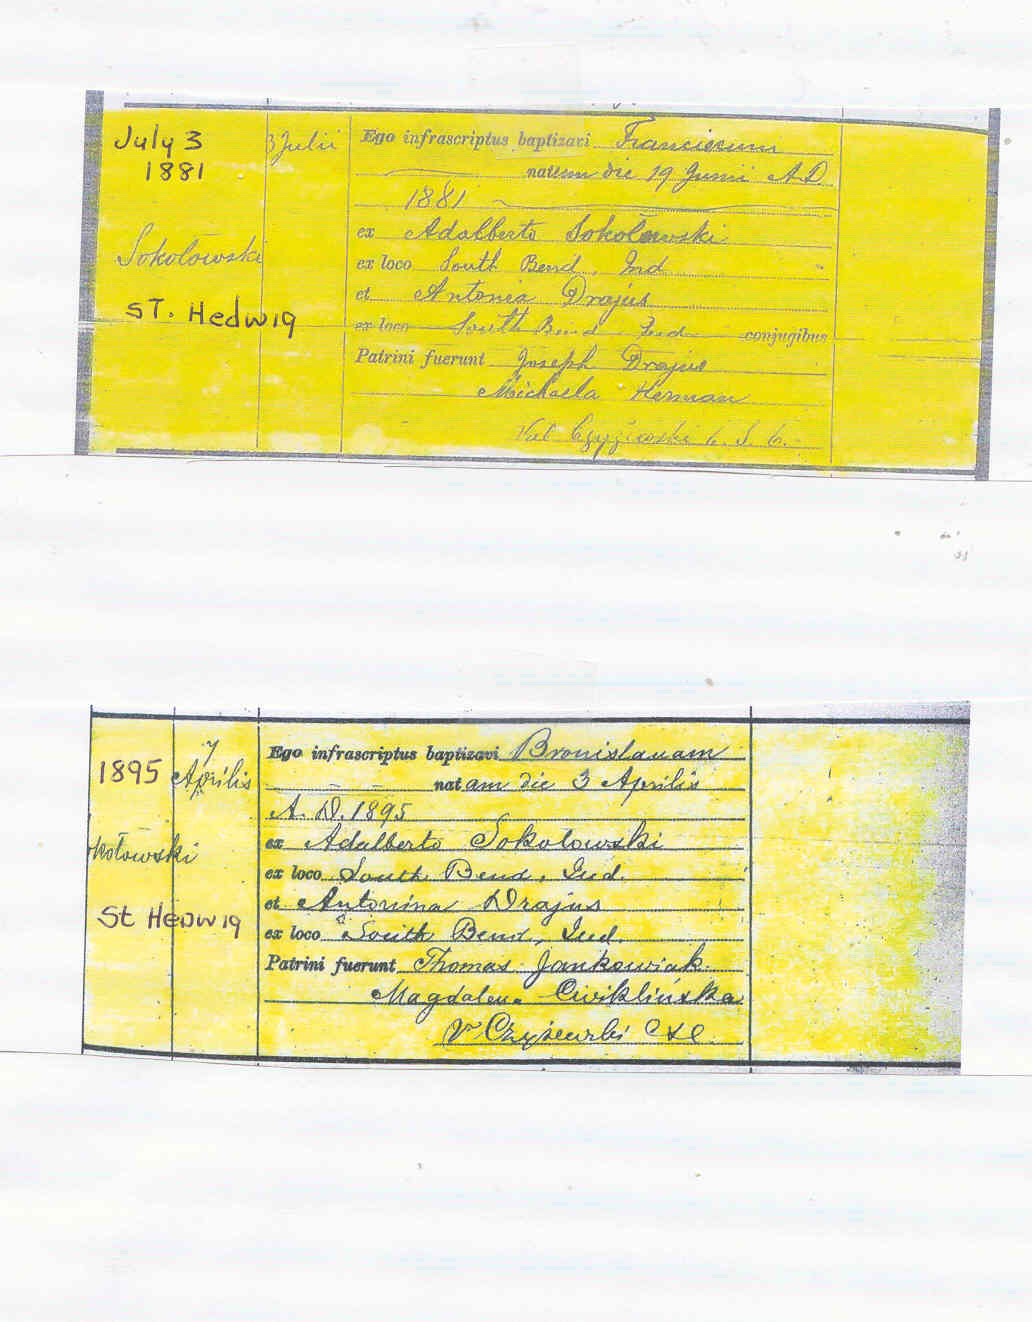 July 3
1881
Sokołowski
ST. Hedwig
3 Julii
Ego infrascriptus baptizavi Franciscum
natum die 19 Junii A.D.
1881
ex Adalberto Sokołowski
ex loco South Bend, Ind
et Antonia Drajus
ex loco South Bend Ind conjugibus
Patrini fuerunt Joseph Drajus
Michaela Herman
Val Czyżewski C. S. C.
1895
kołowski
St Hedwig
7
Aprilis
Ego infrascriptus baptizavi Bronislavam
natam die 3 Aprilis
A. D. 1895
ex Adalberto Sokolowski
ex loco South Bend, Ind.
et Antonina Drajus
ex loco South Bend, Ind.
Patrini fuerunt Thomas Jankowiak
Magdalena Cwiklińska
V Czyżewski CSC.